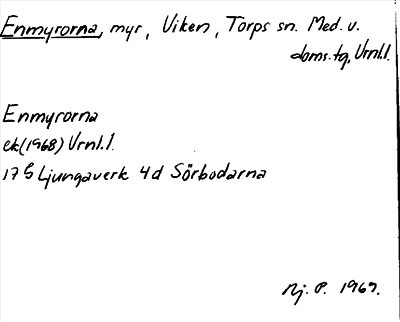 Enmyrorna, myr, Viken, Torps sn. Med. v.
doms.tg, Vrnl.l.
Enmyrorna
ek(1968) Vrnl.l.
17 G Ljungaverk 4d Sörbodarna
Nj. P. 1969.